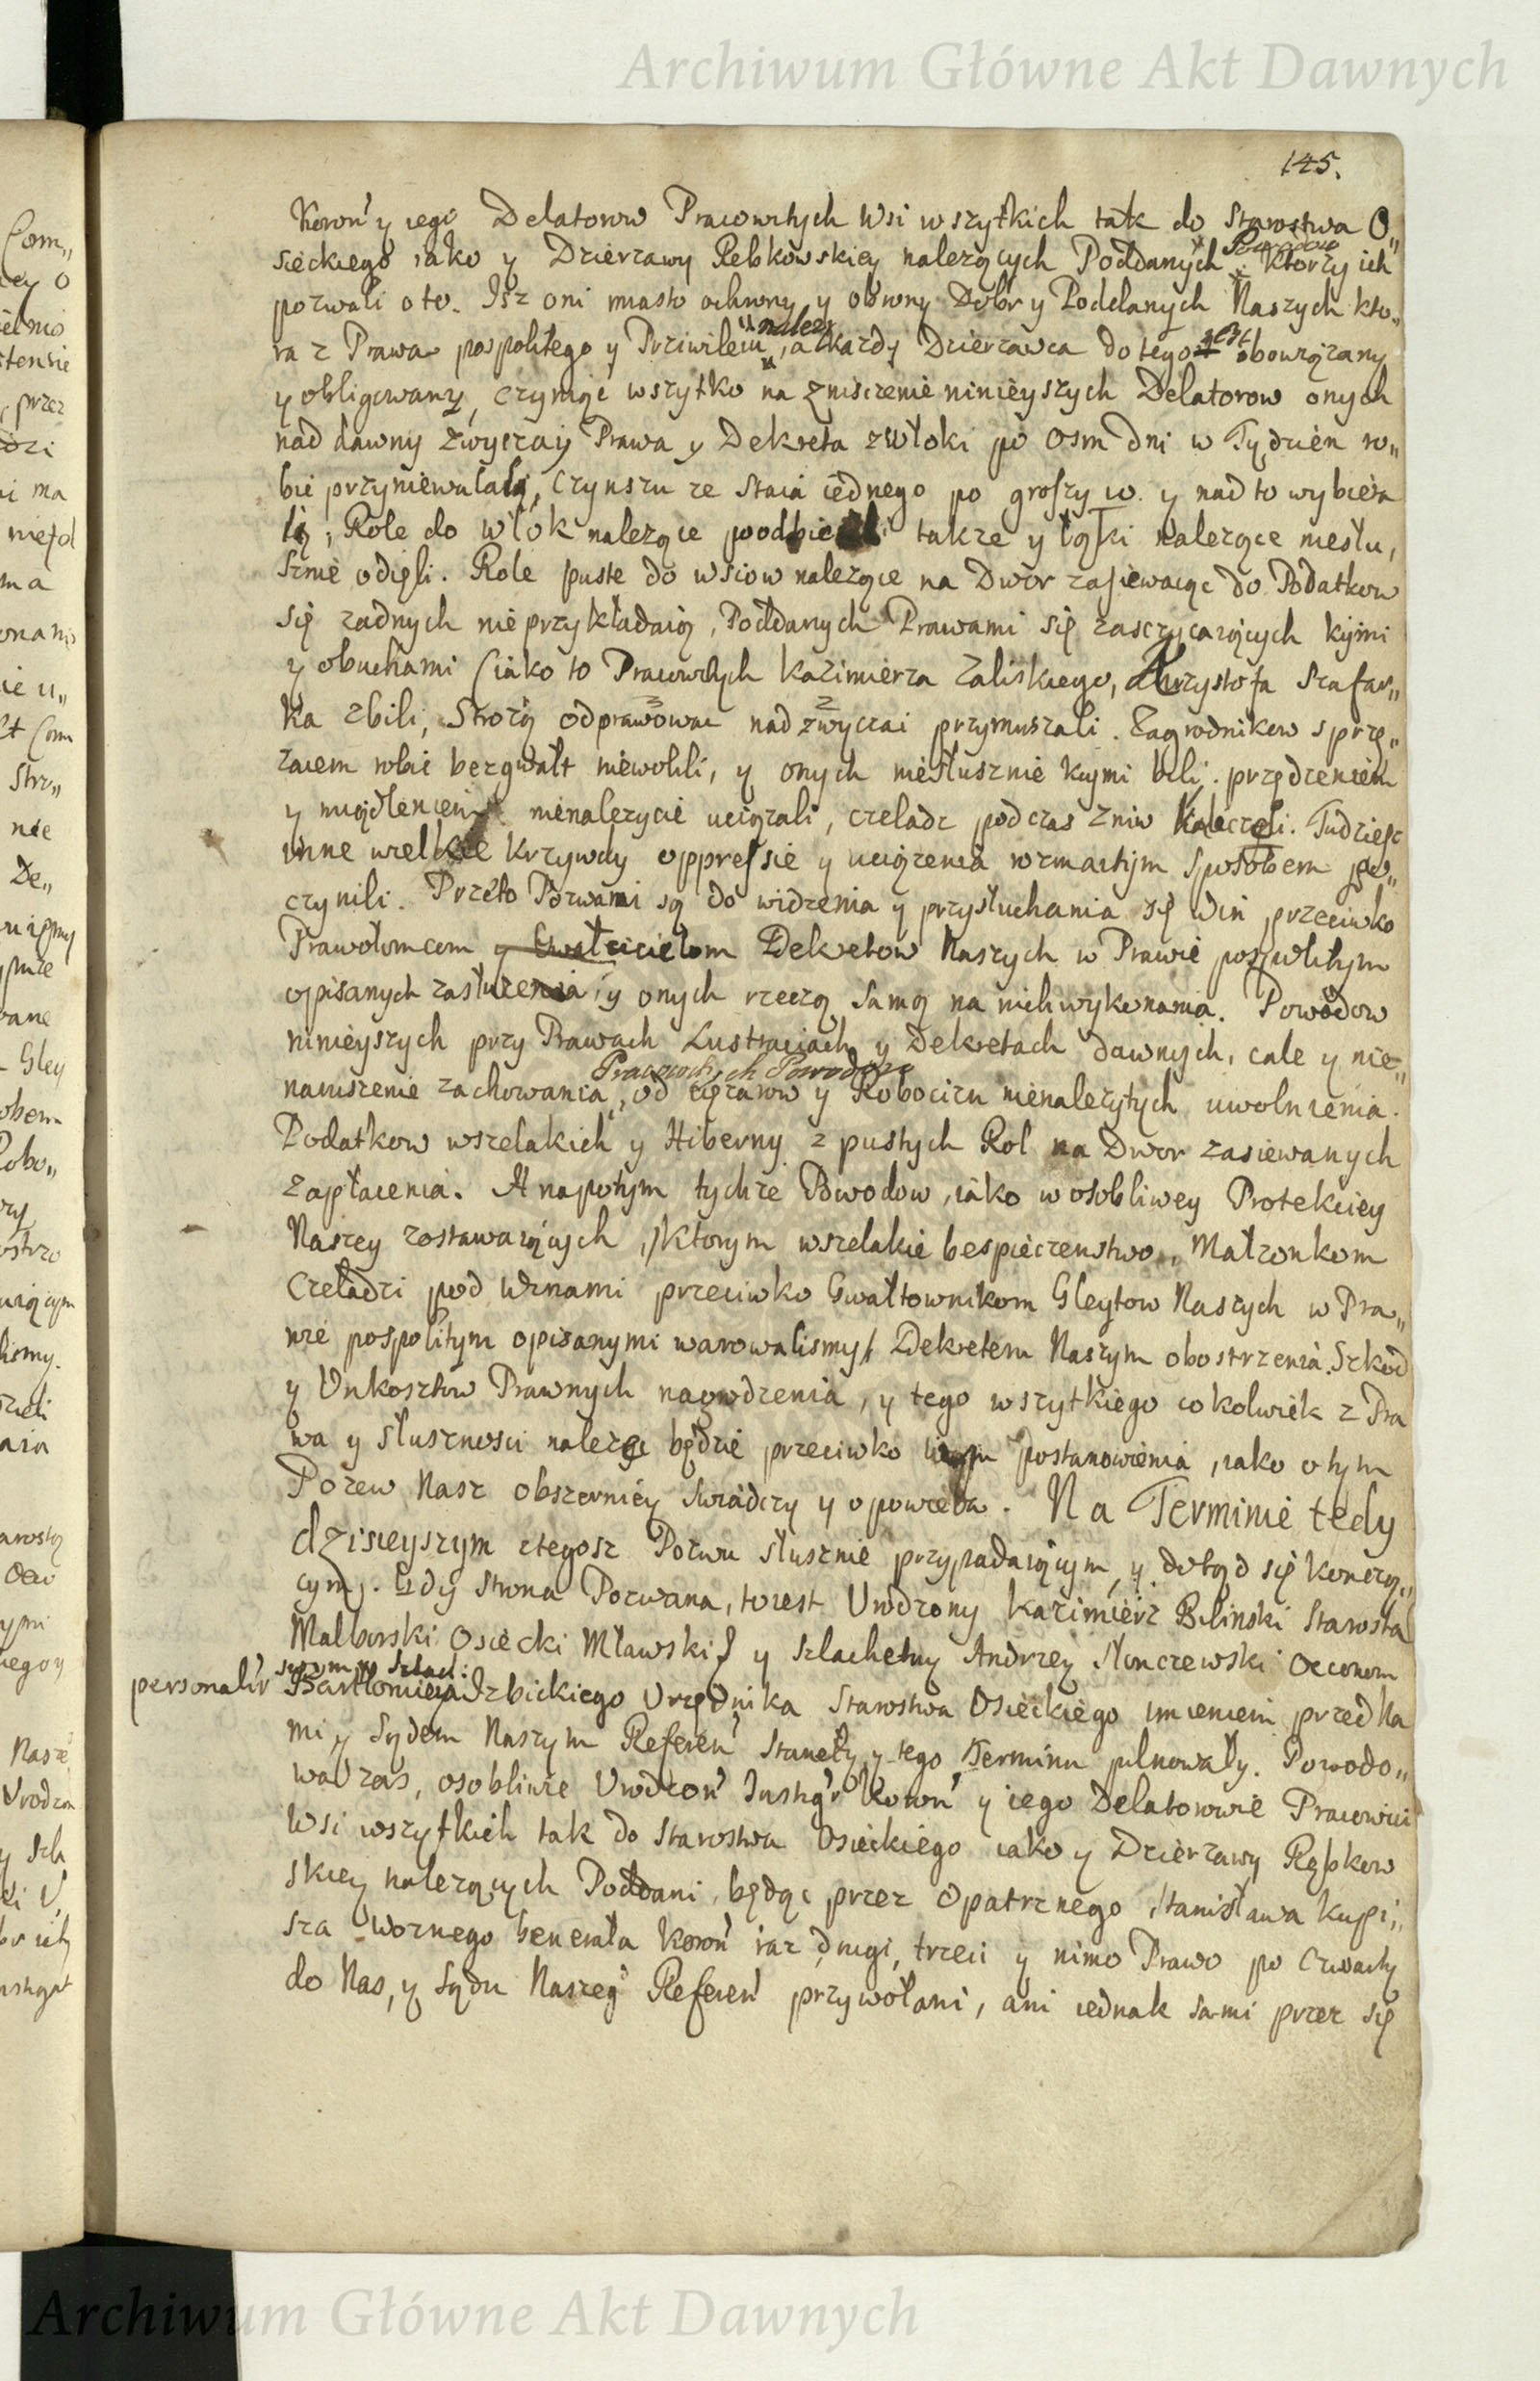 Archiwum Główne Akt Dawnych
145.
Koroń y iego Delatorow Pracowitych Wsi wszytkich tak do Starostwa O„
sieckiego iako y Dzierzawy Rebkowskiey nalezących Poddanych Powodow ktorzy ich
pozwali o to. Isz oni miasto ochrony y obrony Dobr y Poddanych Naszych kto„
ra z Prawa pospolitego y Przywileiu nalezy, a kazdy Dzierzawca do tego iest obowiązany
y obligowany, czyniąc wszytko na zniszczenie ninieyszych Delatorow onych
nad dawny zwyczay Prawa y Dekreta z Włoki po osm dni w Tydzien ro„
bic przyniewalaią, Czynszu ze Staia iednego po groszy 10. y nad to wybiera
ią, Role do Włok nalezące takze y łąki nalezące niesłu„
sznie odięli. Role puste do wsiow nalezące na Dwor zasiewaiąc do Podatkow
się zadnych nie przykładaią, Poddanych Prawami się zasczycaiących kiymi
y obuchami (iako to Pracowitych Kazimierza Zaliskiego, Krzysztofa Szafar„
ka zbili, Strozą odprawowac nad zwyczai przymuszali. Zagrodnikow sprzę„
zaiem robic bezgwałt niewolili, y onych niesłusznie kiymi bili, przędzeniem
y międleniem nienalezycie uciązali, czeladz podczas zniw kaleczyli. Tudziesz
inne wielkie krzywdy oppressie y uciązenia rozmaitym sposobem po„
czynili. Przeto Pozwani są do widzenia y przysłuchania się Win przeciwko
Prawołomcom y Gwałcicielom Dekretow Naszych w Prawie pospolitym
opisanych zasłuzenia, y onych rzeczą samą na nich wykonania. Powodow
ninieyszych przy Prawach Lustraciach y Dekretach dawnych, cale y nie„
naruszenie zachowania, Pracowitych Powodow od cięzarow y Robocizn nienalezytych uwolnienia.
Podatkow wszelakich y Hiberny z pustych Rol na Dwor zasiewanych
zapłacenia. A napotym tychze Powodow, iako w osobliwey Protekciey
Naszey zostawaiących, /ktorym wszelakie bespieczenstwo, Małzonkom
Czeladzi pod Winami przeciwko Gwałtownikom Gleytow Naszych w Pra„
wie pospolitym opisanymi warowalismy/ Dekretem Naszym obostrzenia. Szkod
y Unkosztow Prawnych nagrodzenia, y tego wszytkiego cokolwiek z Pra
wa y słusznosci nalezec będzie przeciwko postanowienia, iako o tym
Pozew Nasz obszerniey swiadczy y opowieda. Na Terminie tedy
dzisieyszym z tegosz Pozwu słusznie przypadaiącym, y dotąd się koncząc„
cym. Gdy strona Pozwana, to iest Urodzony Kazimierz Bilinski Starosta
Malborski Osiecki Mławski y Szlachetny Andrzey Słonczewski Oeconom
personalir suo y Szlach:
Bartłomieja Izbickiego Urzędnika Starostwa Osieckiego imieniem przed Na
mi y Sądem Naszym Referen Stanęły y tego Terminu pilnowały. Powodo„
wa zas, osobliwie Urodzon Instigr Koroń y iego Delatorowie Pracowici
Wsi wszytkich tak do Starostwa Osieckiego iako y Dzierzawy Rębkow
skiey nalezących Poddani, będąc przez Opatrznego Stanisława Kupi„
sza Woznego Generała Koroń raz, drugi, trzeci y nimo Prawo po Czwarty
do Nas, y Sądu Naszeg Referen przywołani, ani iednak sami przez się
Archiwum Główne Akt Dawnych